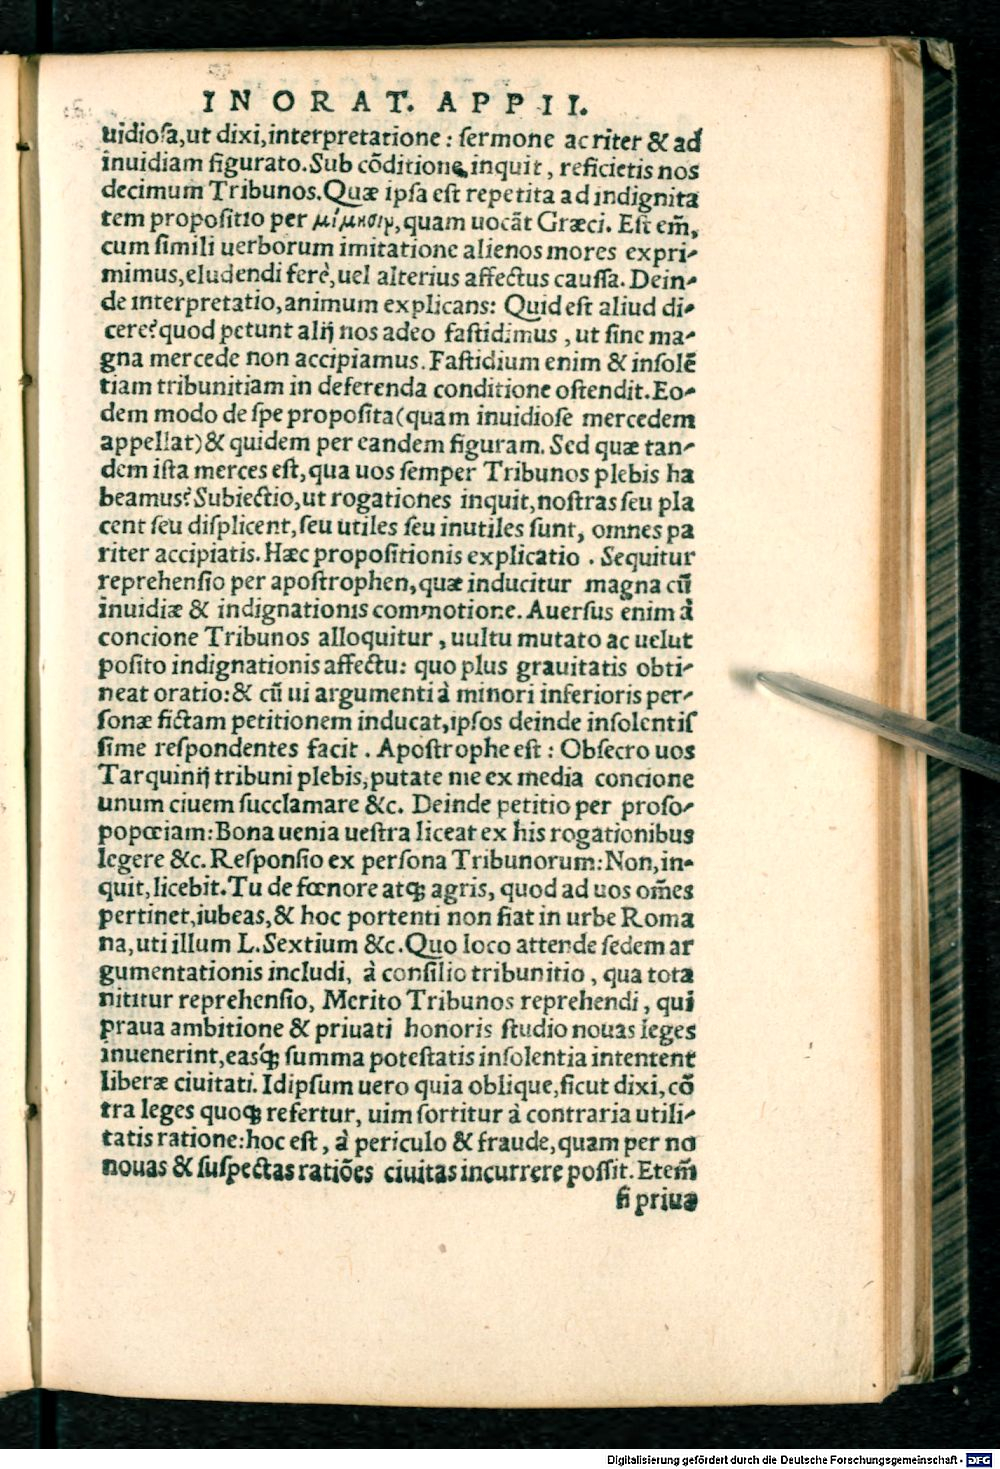 IN ORAT. APPII.
uidiosa,ut dixi,interpretatione: sermone acriter & ad
inuidiam figurato.Sub cõditione, inquit, reficietis nos
decimum Tribunos.Quæ ipsa est repetita ad indignita
tem propositio per μίμησιν,quam uocãt Græci. Est em̃,
cum simili uerborum imitatione alienos mores expri-
mimus,eludendi ferè,uel alterius affectus caussa. Dein-
de interpretatio,animum explicans: Quid est aliud di-
cere?quod petunt alij nos adeo fastidimus, ut sine ma-
gna mercede non accipiamus. Fastidium enim & insolẽ
tiam tribunitiam in deferenda conditione ostendit. Eo-
dem modo de spe proposita(quam inuidiose mercedem
appellat)& quidem per eandem figuram. Sed quæ tan-
dem ista merces est,qua uos semper Tribunos plebis ha
beamus?Subiectio,ut rogationes inquit,nostras seu pla
cent seu displicent,seu utiles seu inutiles sunt, omnes pa
riter accipiatis. Hæc propositionis explicatio . Sequitur
reprehensio per apostrophen,quæ inducitur magna cũ
inuidiæ & indignationis commotione. Auersus enim à
concione Tribunos alloquitur, uultu mutato ac uelut
posito indignationis affectu: quo plus grauitatis obti-
neat oratio:& cũ ui argumenti à minori inferioris per-
sonæ fictam petitionem inducat,ipsos deinde insolentis
sime respondentes facit . Apostrophe est: Obsecro uos
Tarquinij tribuni plebis,putate me ex media concione
unum ciuem succlamare &c. Deinde petitio per proso-
popœiam:Bona uenia uestra liceat ex his rogationibus
legere &c. Responsio ex persona Tribunorum:Non,in-
quit,licebit.Tu de fœnore atq; agris, quod ad uos om̃es
pertinet,iubeas,& hoc portenti non fiat in urbe Roma
na,uti illum L.Sextium &c.Quo loco attende sedem ar
gumentationis includi, à consilio tribunitio, qua tota
nititur reprehensio, Merito Tribunos reprehendi, qui
praua ambitione & priuati honoris studio nouas leges
inuenerint,easq́; summa potestatis insolentia intentent
liberæ ciuitati. Idipsum uero quia oblique,sicut dixi,cõ
tra leges quoq; refertur, uim sortitur à contraria utili-
tatis ratione:hoc est, à periculo & fraude,quam per no
nouas & suspectas ratiões ciuitas incurrere possit. Etem̃
si priuæ
Digitalisierung gefördert durch die Deutsche Forschungsgemeinschaft - DFG